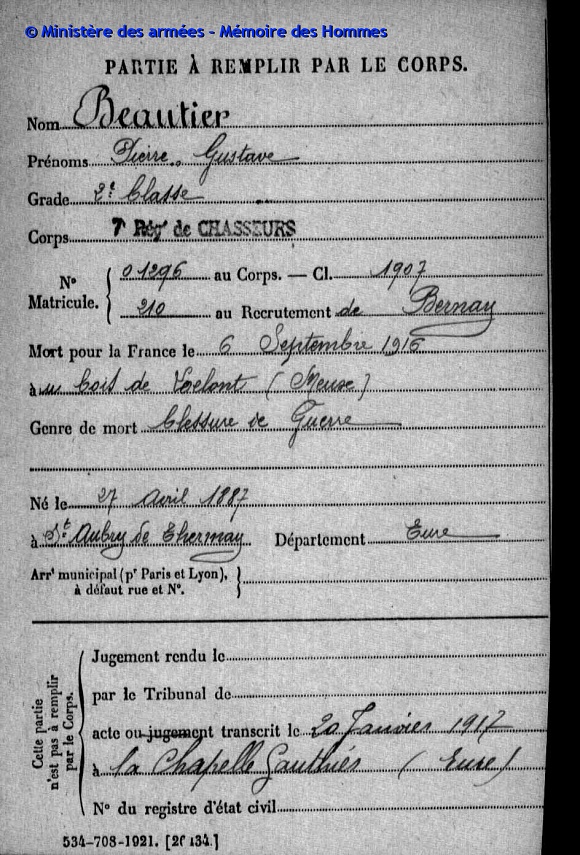 © Ministère des armées - Mémoire des Hommes
PARTIE À REMPLIR PAR LE CORPS.
Nom Beautier
Prénoms Pierre, Gustave
Grade 2e Classe
Corps 7e Régt de CHASSEURS
No Matricule. { 01296 au Corps. — Cl. 1907
210 au Recrutement de Bernay
Mort pour la France le 6 Septembre 1916
à au bois de (Meuse)
Genre de mort blessure de Guerre
Né le 27 Avril 1887
à St Aubry de Thernay Département Eure
Arrt municipal (pr Paris et Lyon),
à défaut rue et No.
Cette partie
n'est pas à remplir
par le Corps.
Jugement rendu le
par le Tribunal de
acte ou jugement transcrit le 20 Janvier 1917
à la Chapelle Gauthier (Eure)
No du registre d'état civil
534-708-1921. [2f 134.]